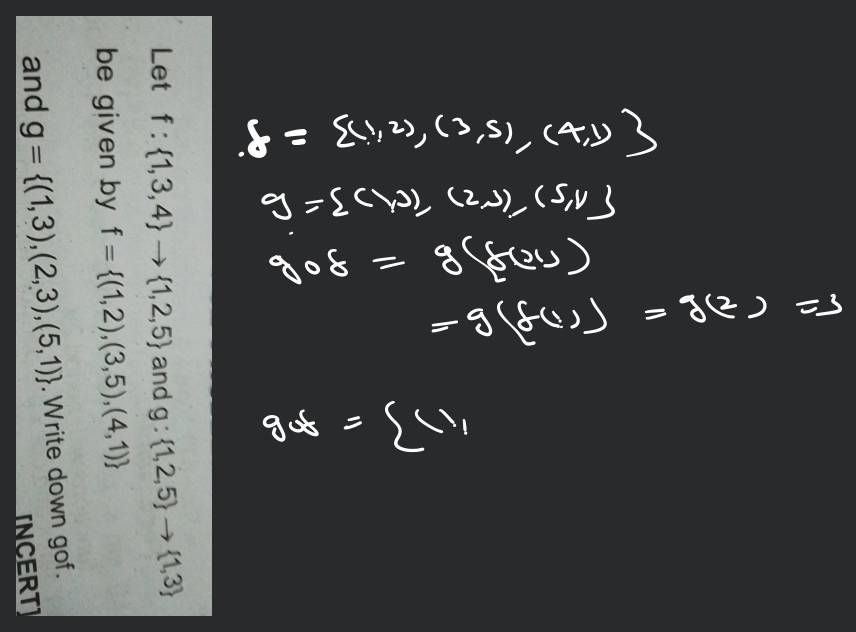 Let f : {1,3,4} → {1,2,5} and g : {1,2,5} → {1,3}
be given by f = {(1,2),(3,5),(4,1)}
and g = {(1,3),(2,3),(5,1)}. Write down gof.
[NCERT]
f = {(1,2), (3,5), (4,1)}
g = {(1,3), (2,3), (5,1)}
gof = g(f(x))
= g(f(1)) = g(2) = 3
gof = {(1,